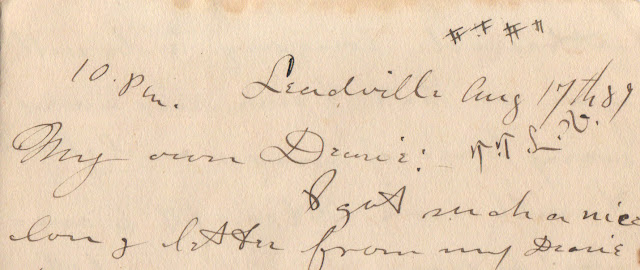 10. Pm. Leadville Aug 17th 89
My own Dearie:
I got such a nice
long letter from my Dearie